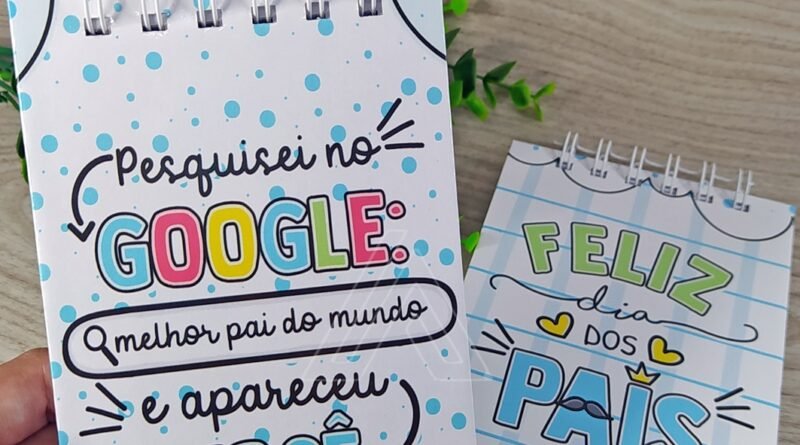 Pesquisei no
GOOGLE:
melhor pai do mundo
e apareceu
FELIZ
dia
DOS
PAIS